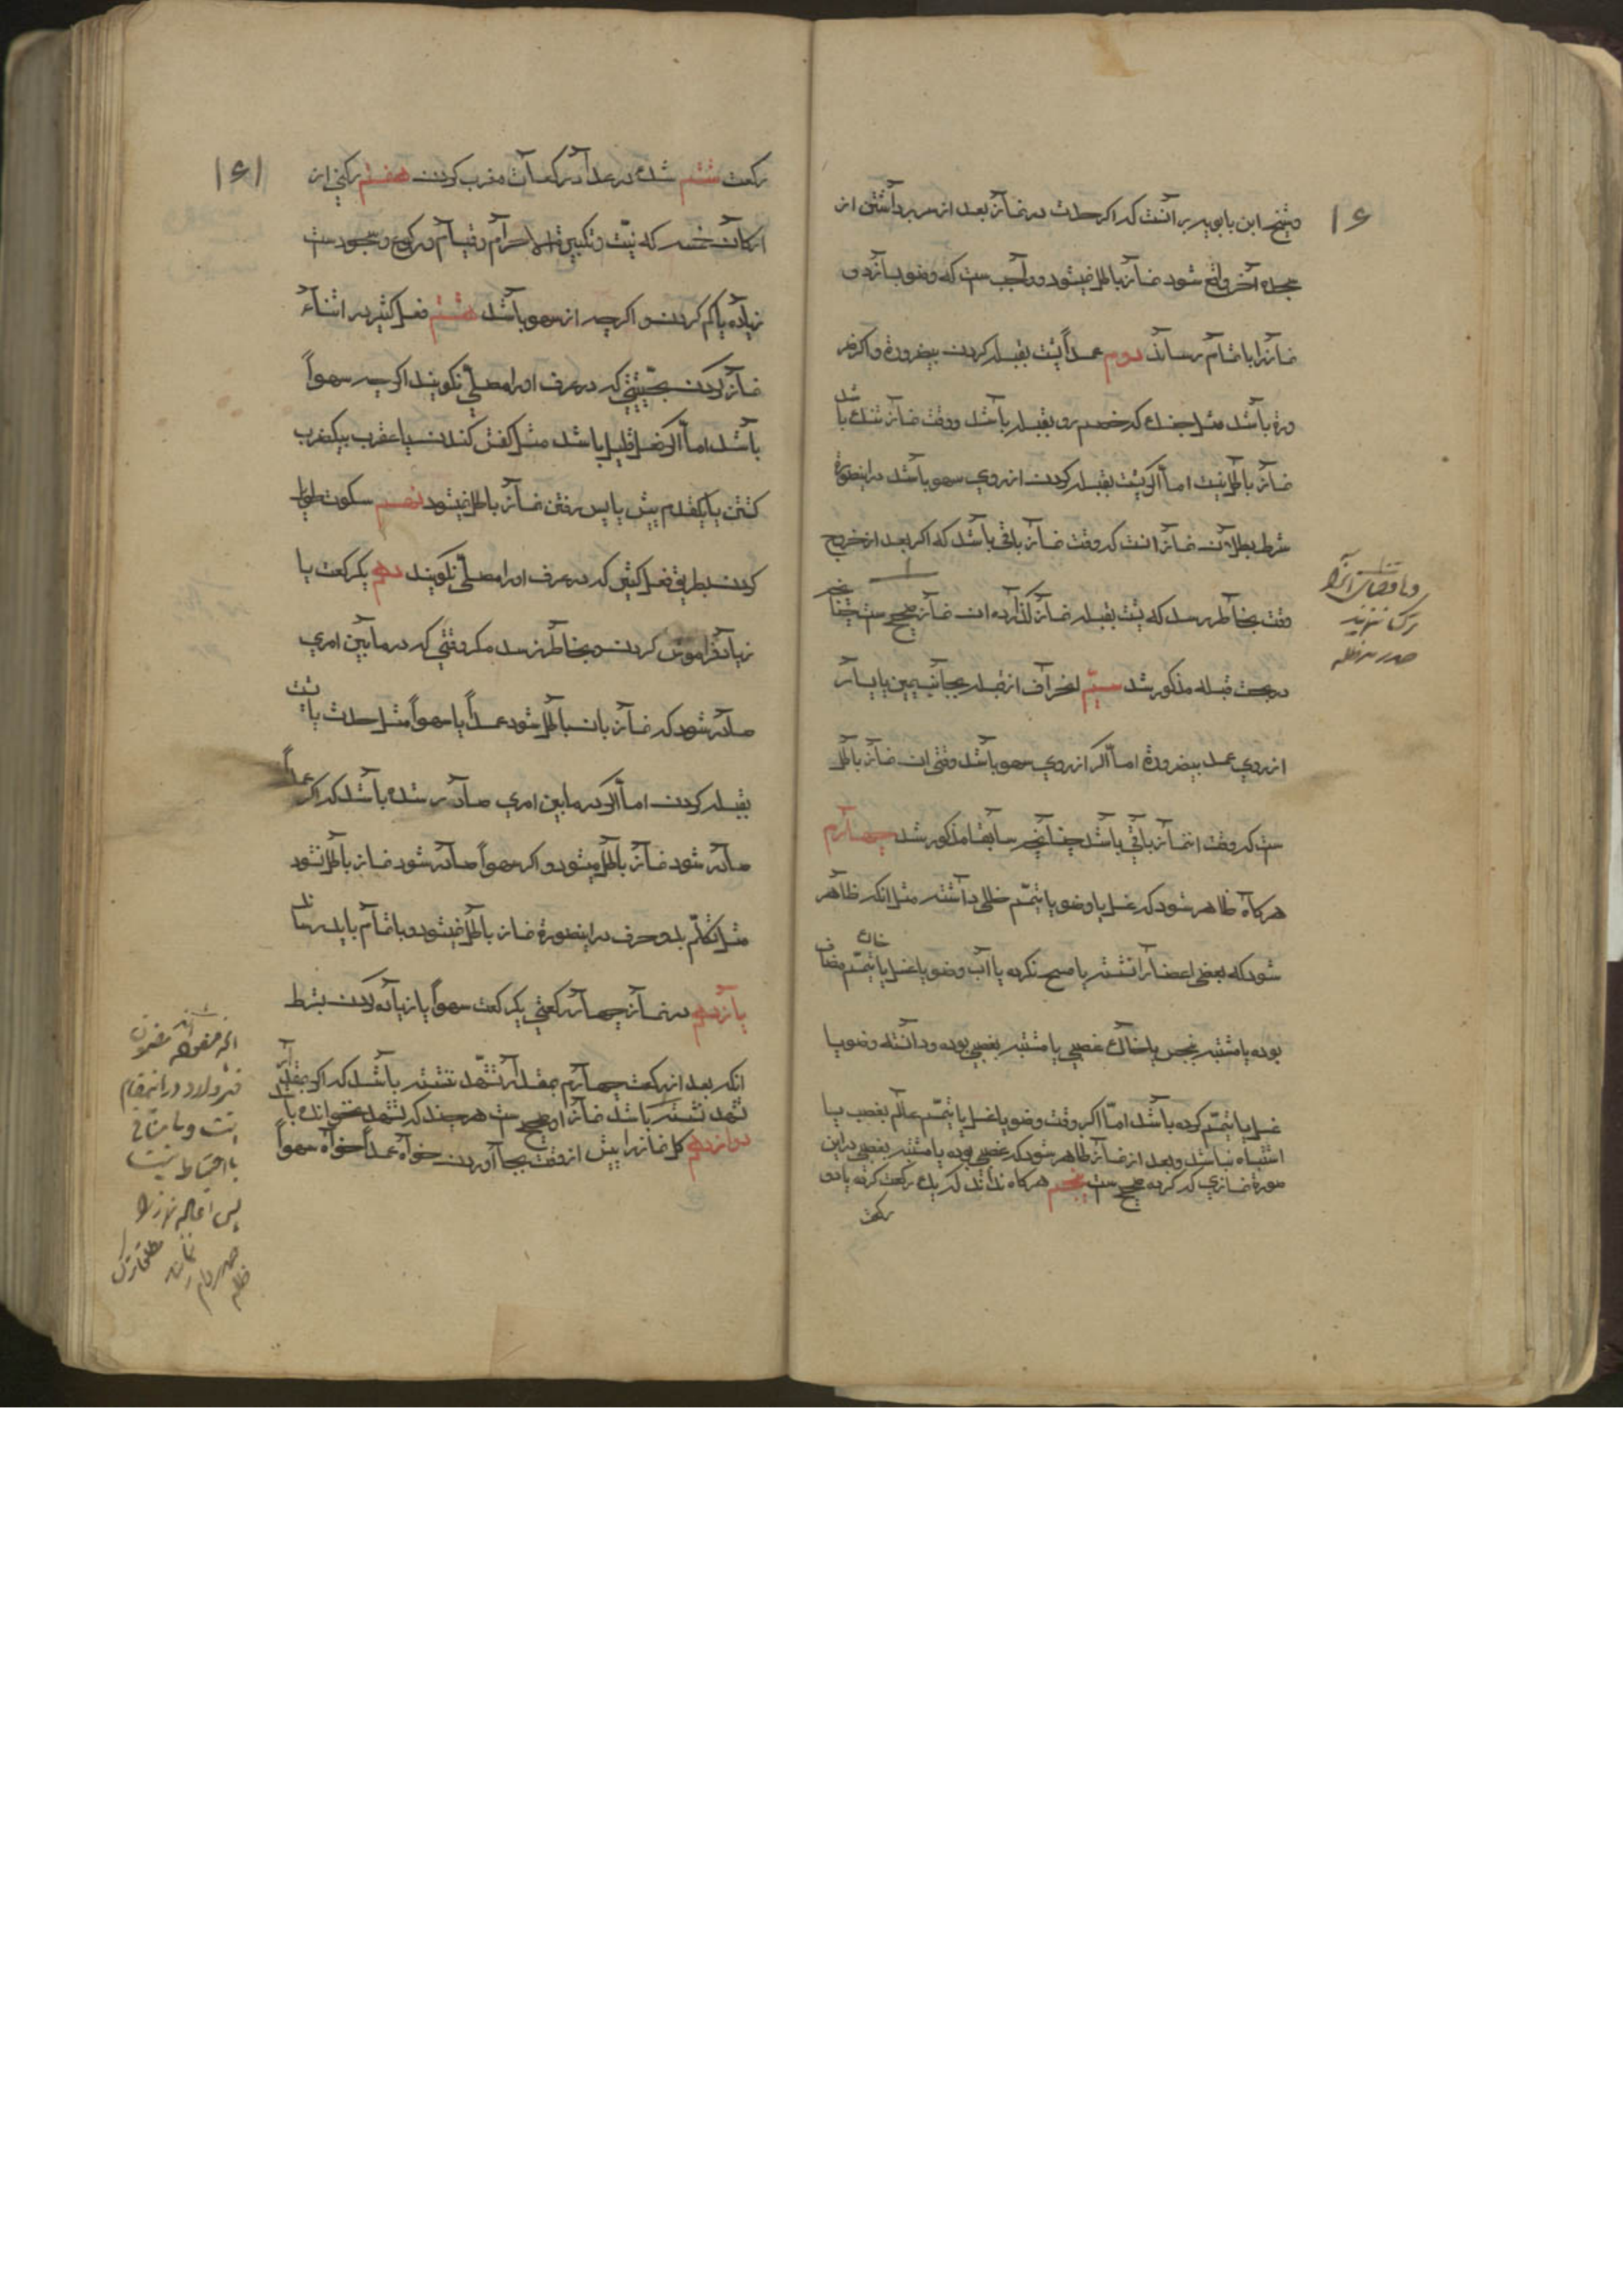 ۱۶
و شیخ ابن بابویه بر آنست که اگر حدث در نماز بعد از سر برداشتن از
سجده آخر واقع شود نماز باطل نمیشود و واجب ست که وضو بسازد و
نماز را باتمام رساند دوم عمداً پشت بقبله کردن بیضرورة و اگر ضر
ورة باشد مثل جنک که خصم رو بقبله باشد و وقت نماز تنک باشد
نماز باطل نیست اما اگر پشت بقبله کردن از روی سهو باشد در اینصورة
شرط بطلان نماز انست که وقت نماز باقی باشد که اگر بعد از خروج
وقت بخاطر رسد که پشت بقبله نماز گذارده ان نماز صحیح ست چنانچه
در بحث قبله مذکور شد سیّم انحراف از قبله بجانب یمین یا یسار
از روی عمد بیضرورة اما اگر از روی سهو باشد وقتی ان نماز باطل
ست که وقت ان نماز باقی باشد چنانچه سابقا مذکور شد چهارم
هرکاه ظاهر شود که غسل یا وضو یا تیمّم خللی داشته مثل انکه ظاهر
شود که بعضی اعضا را نشسته یا مسح نکرده یا آب وضو یا غسل یا خاک تیمّم مضاف
بوده یا مشتبه بنجس یا خاک غصبی یا مشتبه بغصبی بوده و دانسته وضو یا
غسل یا تیمّم کرده باشد امّا اگر وقت وضو یا غسل یا تیمّم عالم بغصب یا
اشتباه نباشد و بعد از نماز ظاهر شود که غصبی بوده یا مشتبه بغصبی در این
صورة نمازی که کرده صحیح ست پنجم هرکاه نداند که یک رکعت کرده یا دو
رکعت
۱۶۱
رکعت ششم شک در عدد رکعات مغرب کردن هفتم رکنی از
ارکان خمسه که نیّت و تکبیرة الاحرام و قیام و رکوع و سجودست
زیاده یا کم کردن و اگرچه از سهو باشد هشتم فعل کثیر در اثناء
نماز کردن بحیثیتی که در عرف او را مصلّی نکویند اگرچه سهواً
باشد اما اگر فعل قلیل باشد مثل کفش کندن یا عقرب بیکضرب
کشتن یا یکقدم پیش یا پس رفتن نماز باطل نمیشود نهم سکوت طویل
کردن بطریق فعل کثیر که در عرف او را مصلّی نکویند دهم یکرکعت یا
زیاد فراموش کردن و بخاطر نرسد مکر وقتی که در مابین امری
صادر شود که نماز بان باطل شود عمداً یا سهواً مثل حدث یا پشت
بقبله کردن اما اگر در مابین امری صادر شده باشد که اگر عمداً
صادر شود نماز باطل میشود و اگر سهواً صادر شود نماز باطل نشود
مثل تکلّم بدو حرف در اینصورة نماز باطل نمیشود و باتمام باید رساند
یازدهم در نماز چهار رکعتی یکرکعت سهواً یا زیاده کردن بشرط
انکه بعد از رکعت چهارم بمقدار تشهّد ننشسته باشد که اگر بمقدار
تشهد نشسته باشد نماز او صحیح ست هرچند که تشهد نخوانده باشد
دوازدهم کل نماز را پیش از وقت بجا آوردن خواه عمداً خواه سهواً